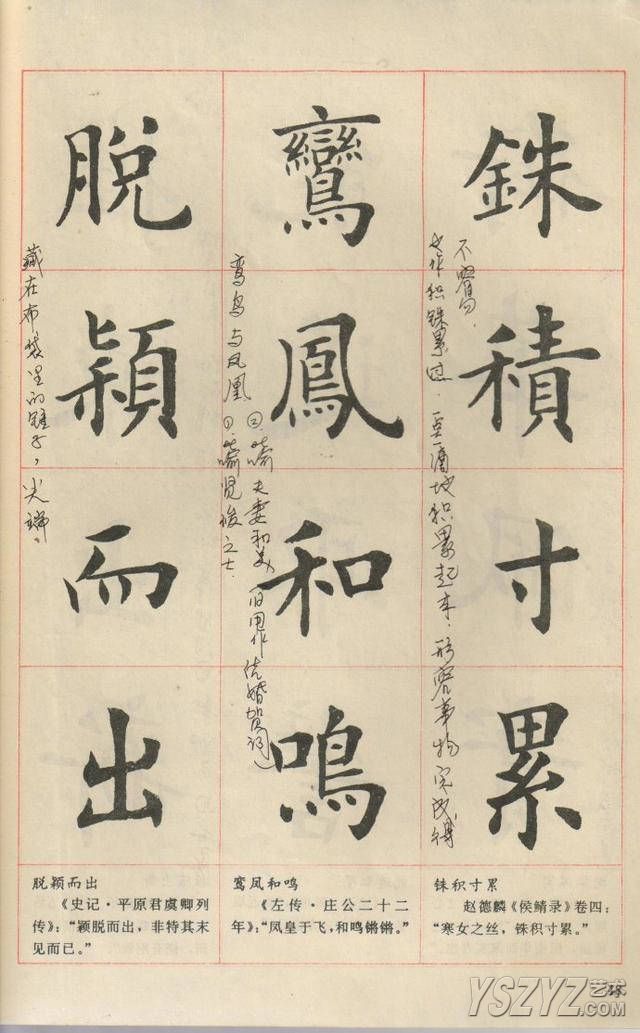 銖積寸累
不容易.
也作积铢累寸.一点一滴地积累起来.形容事物完成得
铢积寸累
赵德麟《侯鲭录》卷四:
“寒女之丝,铢积寸累。”
鸞鳳和鳴
鸾鸟与凤凰 ①.喻贤俊之士.
②.喻夫妻和美,旧用作结婚贺词
鸾凤和鸣
《左传·庄公二十二
年》:“凤皇于飞,和鸣锵锵。”
脱穎而出
藏在布袋里的锥子,尖端。
脱颖而出
《史记·平原君虞卿列
传》:“颖脱而出,非特其末
见而已。”
YSZYZ艺术
.com